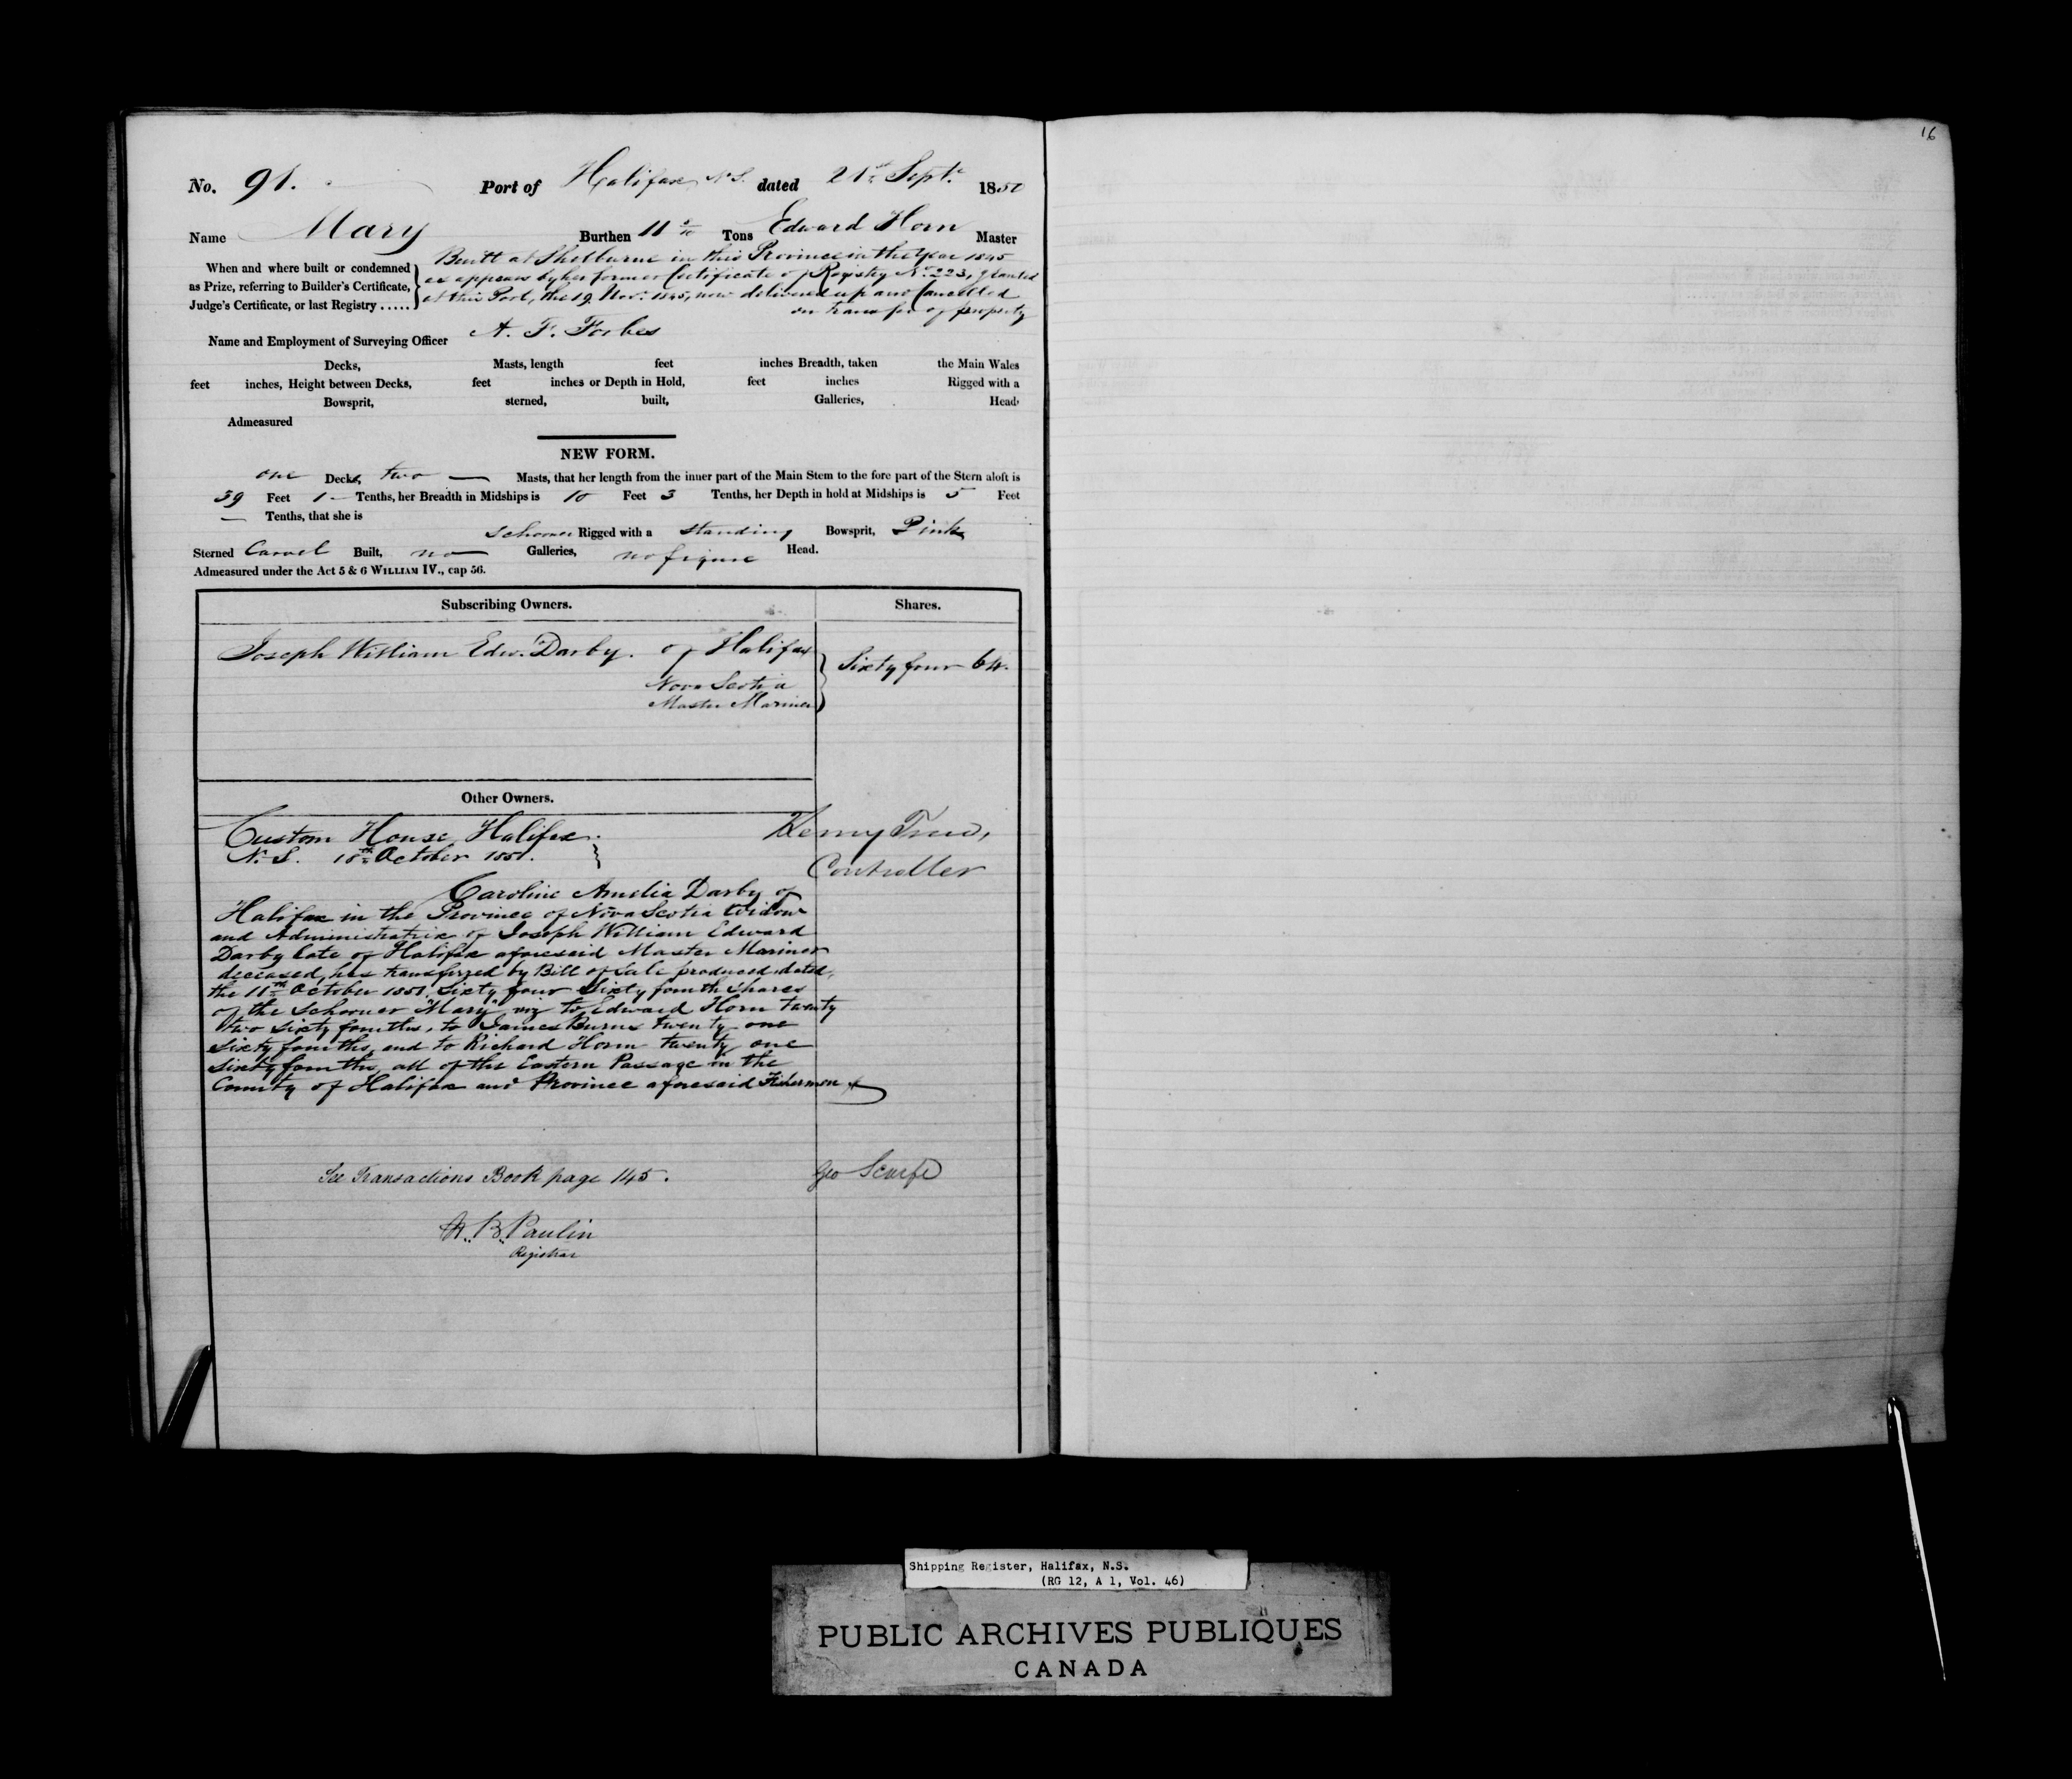 16
No. 91. Port of Halifax N.S. dated 21st Sept. 1850
Name Mary Burthen 11 Tons Edward Horn Master
Built at Shelburne in this Province in the Year 1845
When and where built or condemned
as Prize, referring to Builder's Certificate,
Judge's Certificate, or last Registry .....
as appears by her former Certificate of Registry No. 223, granted
at this Port, the 19 Nov. 1845, now delivered up and Cancelled
on transfer of property
Name and Employment of Surveying Officer A. F. Forbes
Decks, Masts, length feet inches Breadth, taken the Main Wales
feet inches, Height between Decks, feet inches or Depth in Hold, feet inches Rigged with a
Bowsprit, sterned, built, Galleries, Head
Admeasured
NEW FORM.
one Decks, two Masts, that her length from the inner part of the Main Stem to the fore part of the Stern aloft is
39 Feet 1 Tenths, her Breadth in Midships is 10 Feet 3 Tenths, her Depth in hold at Midships is 5 Feet
— Tenths, that she is
Schooner Rigged with a standing Bowsprit, Pink
Sterned Carvel Built, no Galleries, no figure Head.
Admeasured under the Act 5 & 6 WILLIAM IV., cap 56.
Subscribing Owners. Shares.
Joseph William Edw. Darby. of Halifax
Nova Scotia
Master Mariner
Sixty four 64.
Other Owners.
Custom House, Halifax.
N.S. 18th October 1851.
Henry
Controller
Caroline Amelia Darby of
Halifax in the Province of Nova Scotia Widow
and Administratrix of Joseph William Edward
Darby late of Halifax aforesaid Master Mariner
deceased, has transferred by Bill of Sale produced, dated,
the 18th October 1851, Sixty four Sixty fourth Shares
of the Schooner "Mary" viz to Edward Horn twenty
two sixty fourths, to James Burns twenty one
Sixty fourths, and to Richard Horn twenty one
Sixty fourths, all of the Eastern Passage in the
County of Halifax and Province aforesaid Fishermen
See Transactions Book page 145. Geo Scarfe
H. B. Paulin
Registrar
Shipping Register, Halifax, N.S.
(RG 12, A 1, Vol. 46)
PUBLIC ARCHIVES PUBLIQUES
CANADA